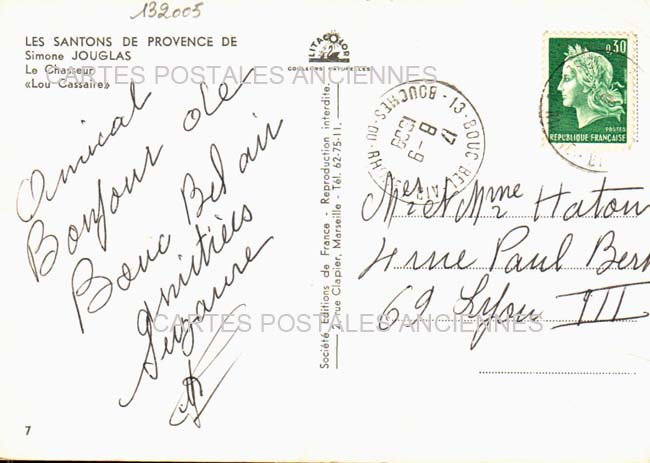 132005
LES SANTONS DE PROVENCE DE
Simone JOUGLAS
Le Chasseur
«Lou Cassaire»
LITACOLOR
COULEURS NATURELLES
CARTES POSTALES ANCIENNES
Amical
Bonjour de
Bouc Bel air
Amitiés
Suzanne
7
Société Editions de France - Reproduction interdite.
2, rue Clapier, Marseille - Tél. 62-75-11.
13-BOUC-BEL-AIR
BOUCHES-DU-RH
17
8-9
0,30
POSTES
REPUBLIQUE FRANÇAISE
Mr et Mme Haton
4 rue Paul Ber
69 Lyon III
CARTES POSTALES ANCIENNES